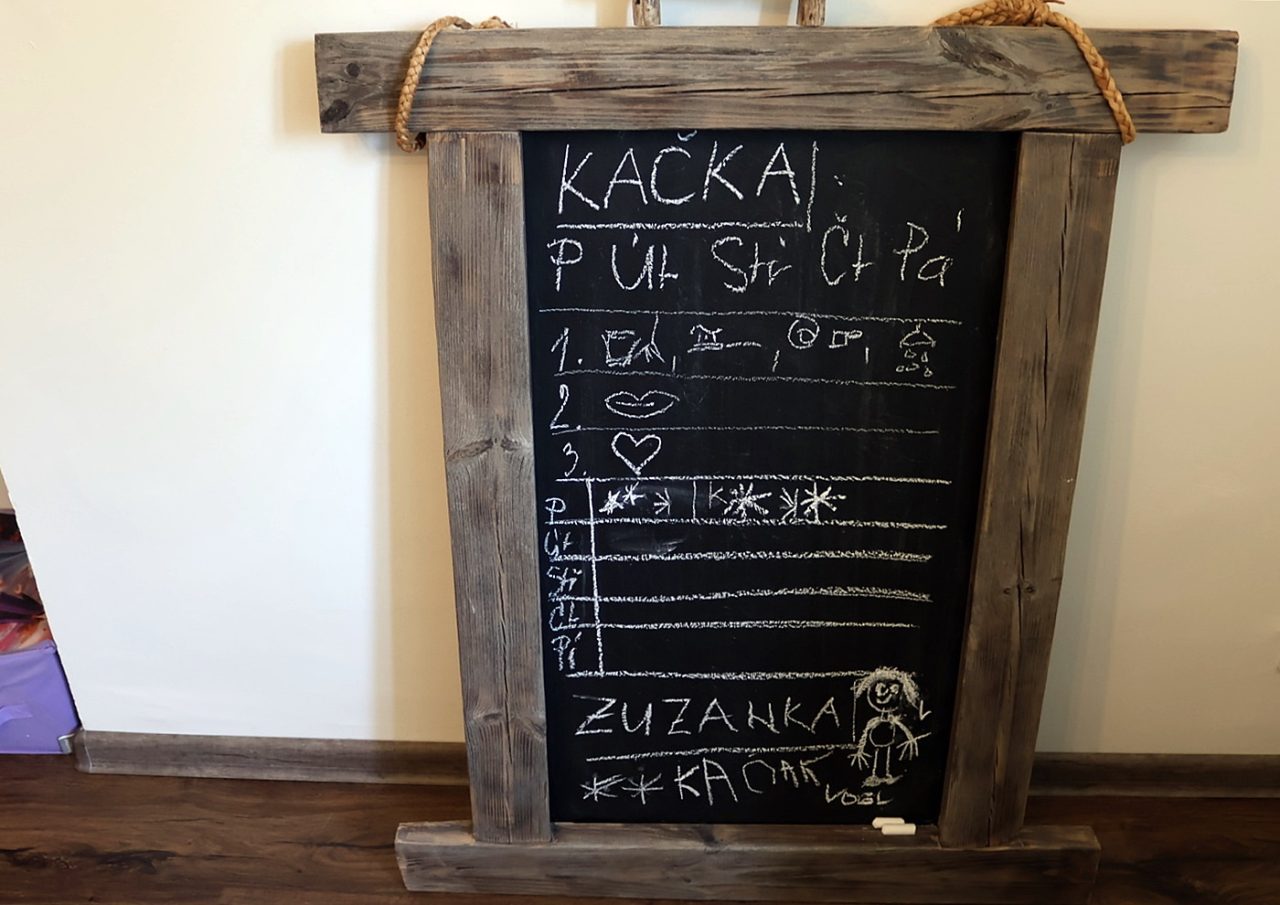 KAČKA
P Út Stř Čt Pá
1.
2.
3.
P K
Út
Stř
Čt
Pá
ZUZANKA